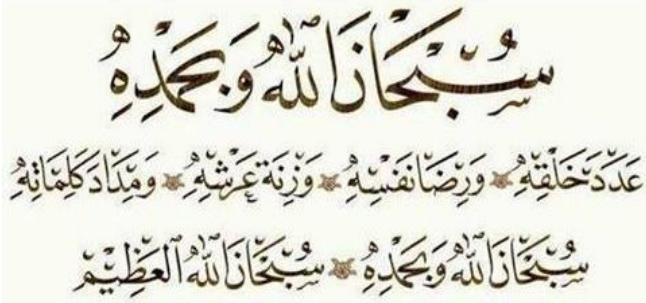 سُبْحَانَ اللّٰهِ وَبِحَمْدِهِ
عَدَدَ خَلْقِهِ وَرِضَا نَفْسِهِ وَزِنَةَ عَرْشِهِ وَمِدَادَ كَلِمَاتِهِ
سُبْحَانَ اللّٰهِ وَبِحَمْدِهِ سُبْحَانَ اللّٰهِ الْعَظِيمِ